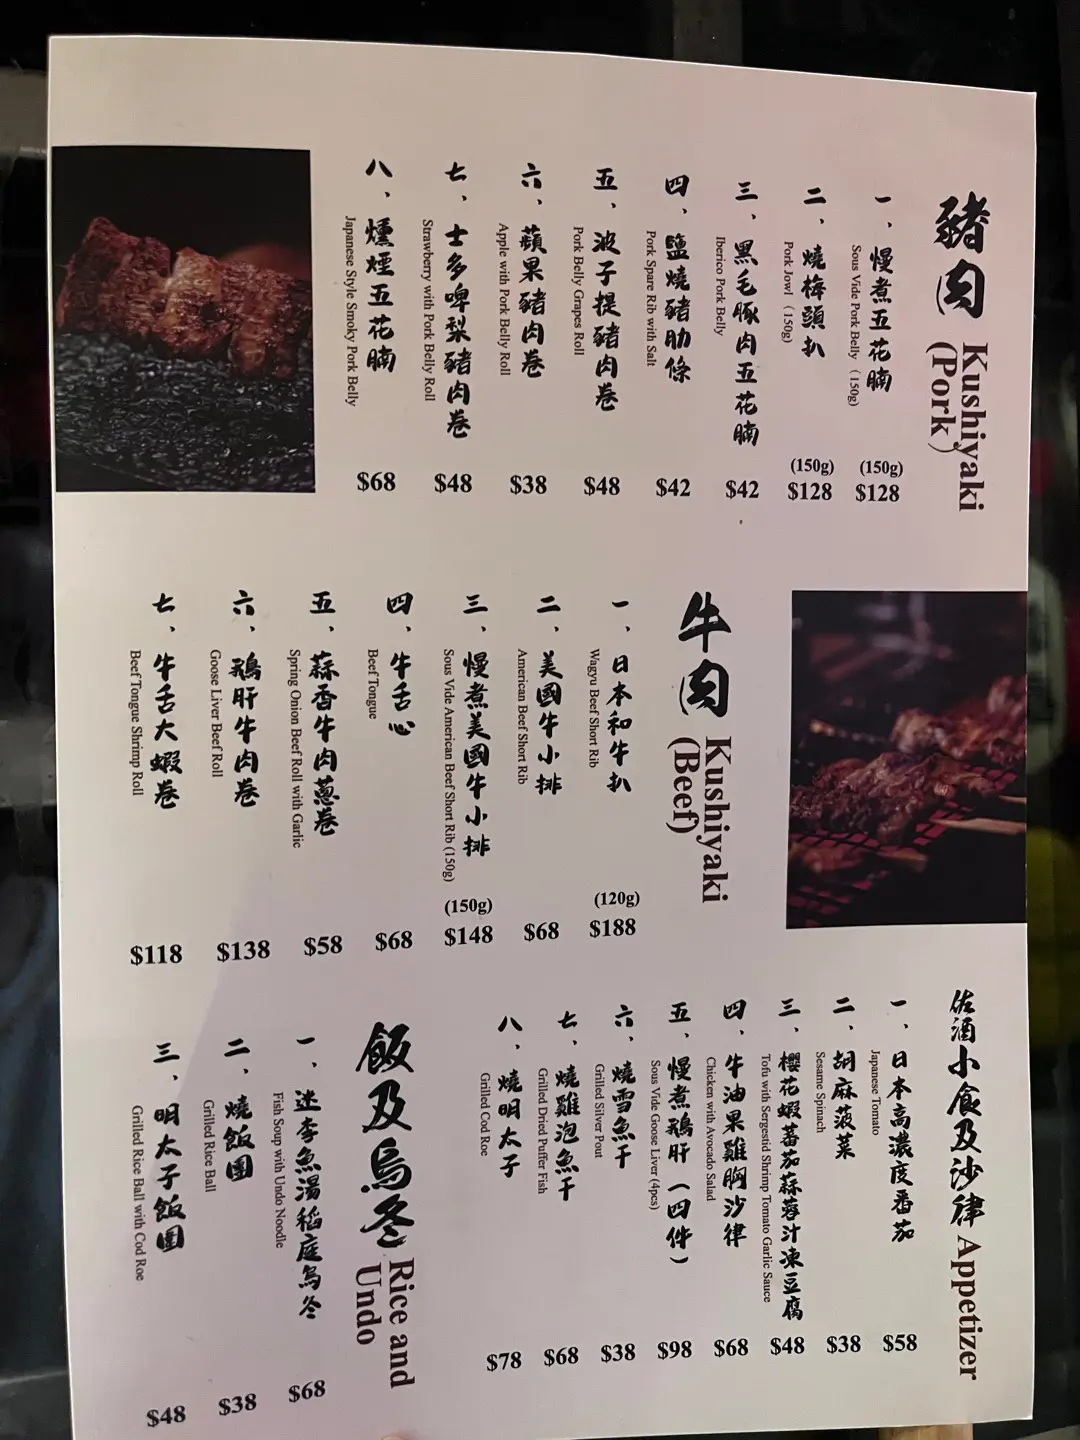 豬肉 Kushiyaki
(Pork)
一、慢煮五花腩 (150g)
Sous Vide Pork Belly (150g)
$128
二、燒梅頭扒 (150g)
Pork Jowl (150g)
$128
三、黑毛豚肉五花腩 $42
Iberico Pork Belly
四、鹽燒豬肋條 $42
Pork Spare Rib with Salt
五、波子提豬肉卷 $48
Pork Belly Grapes Roll
六、蘋果豬肉卷 $38
Apple with Pork Belly Roll
七、士多啤梨豬肉卷 $48
Strawberry with Pork Belly Roll
八、燻煙五花腩 $68
Japanese Style Smoky Pork Belly
牛肉 Kushiyaki
(Beef)
一、日本和牛扒 (120g)
Wagyu Beef Short Rib
$188
二、美國牛小排 $68
American Beef Short Rib
三、慢煮美國牛小排 (150g)
Sous Vide American Beef Short Rib (150g)
$148
四、牛舌心 $68
Beef Tongue
五、蒜香牛肉蔥卷 $58
Spring Onion Beef Roll with Garlic
六、鵝肝牛肉卷 $138
Goose Liver Beef Roll
七、牛舌大蝦卷 $118
Beef Tongue Shrimp Roll
佐酒小食及沙律 Appetizer
一、日本高濃度番茄 $58
Japanese Tomato
二、胡麻菠菜 $38
Sesame Spinach
三、櫻花蝦蕃茄蒜蓉汁凍豆腐 $48
Tofu with Sergestid Shrimp Tomato Garlic Sauce
四、牛油果雞胸沙律 $68
Chicken with Avocado Salad
五、慢煮鵝肝（四件） $98
Sous Vide Goose Liver (4pcs)
六、燒雪魚干 $38
Grilled Silver Pout
七、燒雞泡魚干 $68
Grilled Dried Puffer Fish
八、燒明太子 $78
Grilled Cod Roe
飯及烏冬 Rice and
Undo
一、迷李魚湯稻庭烏冬 $68
Fish Soup with Undo Noodle
二、燒飯團 $38
Grilled Rice Ball
三、明太子飯團 $48
Grilled Rice Ball with Cod Roe